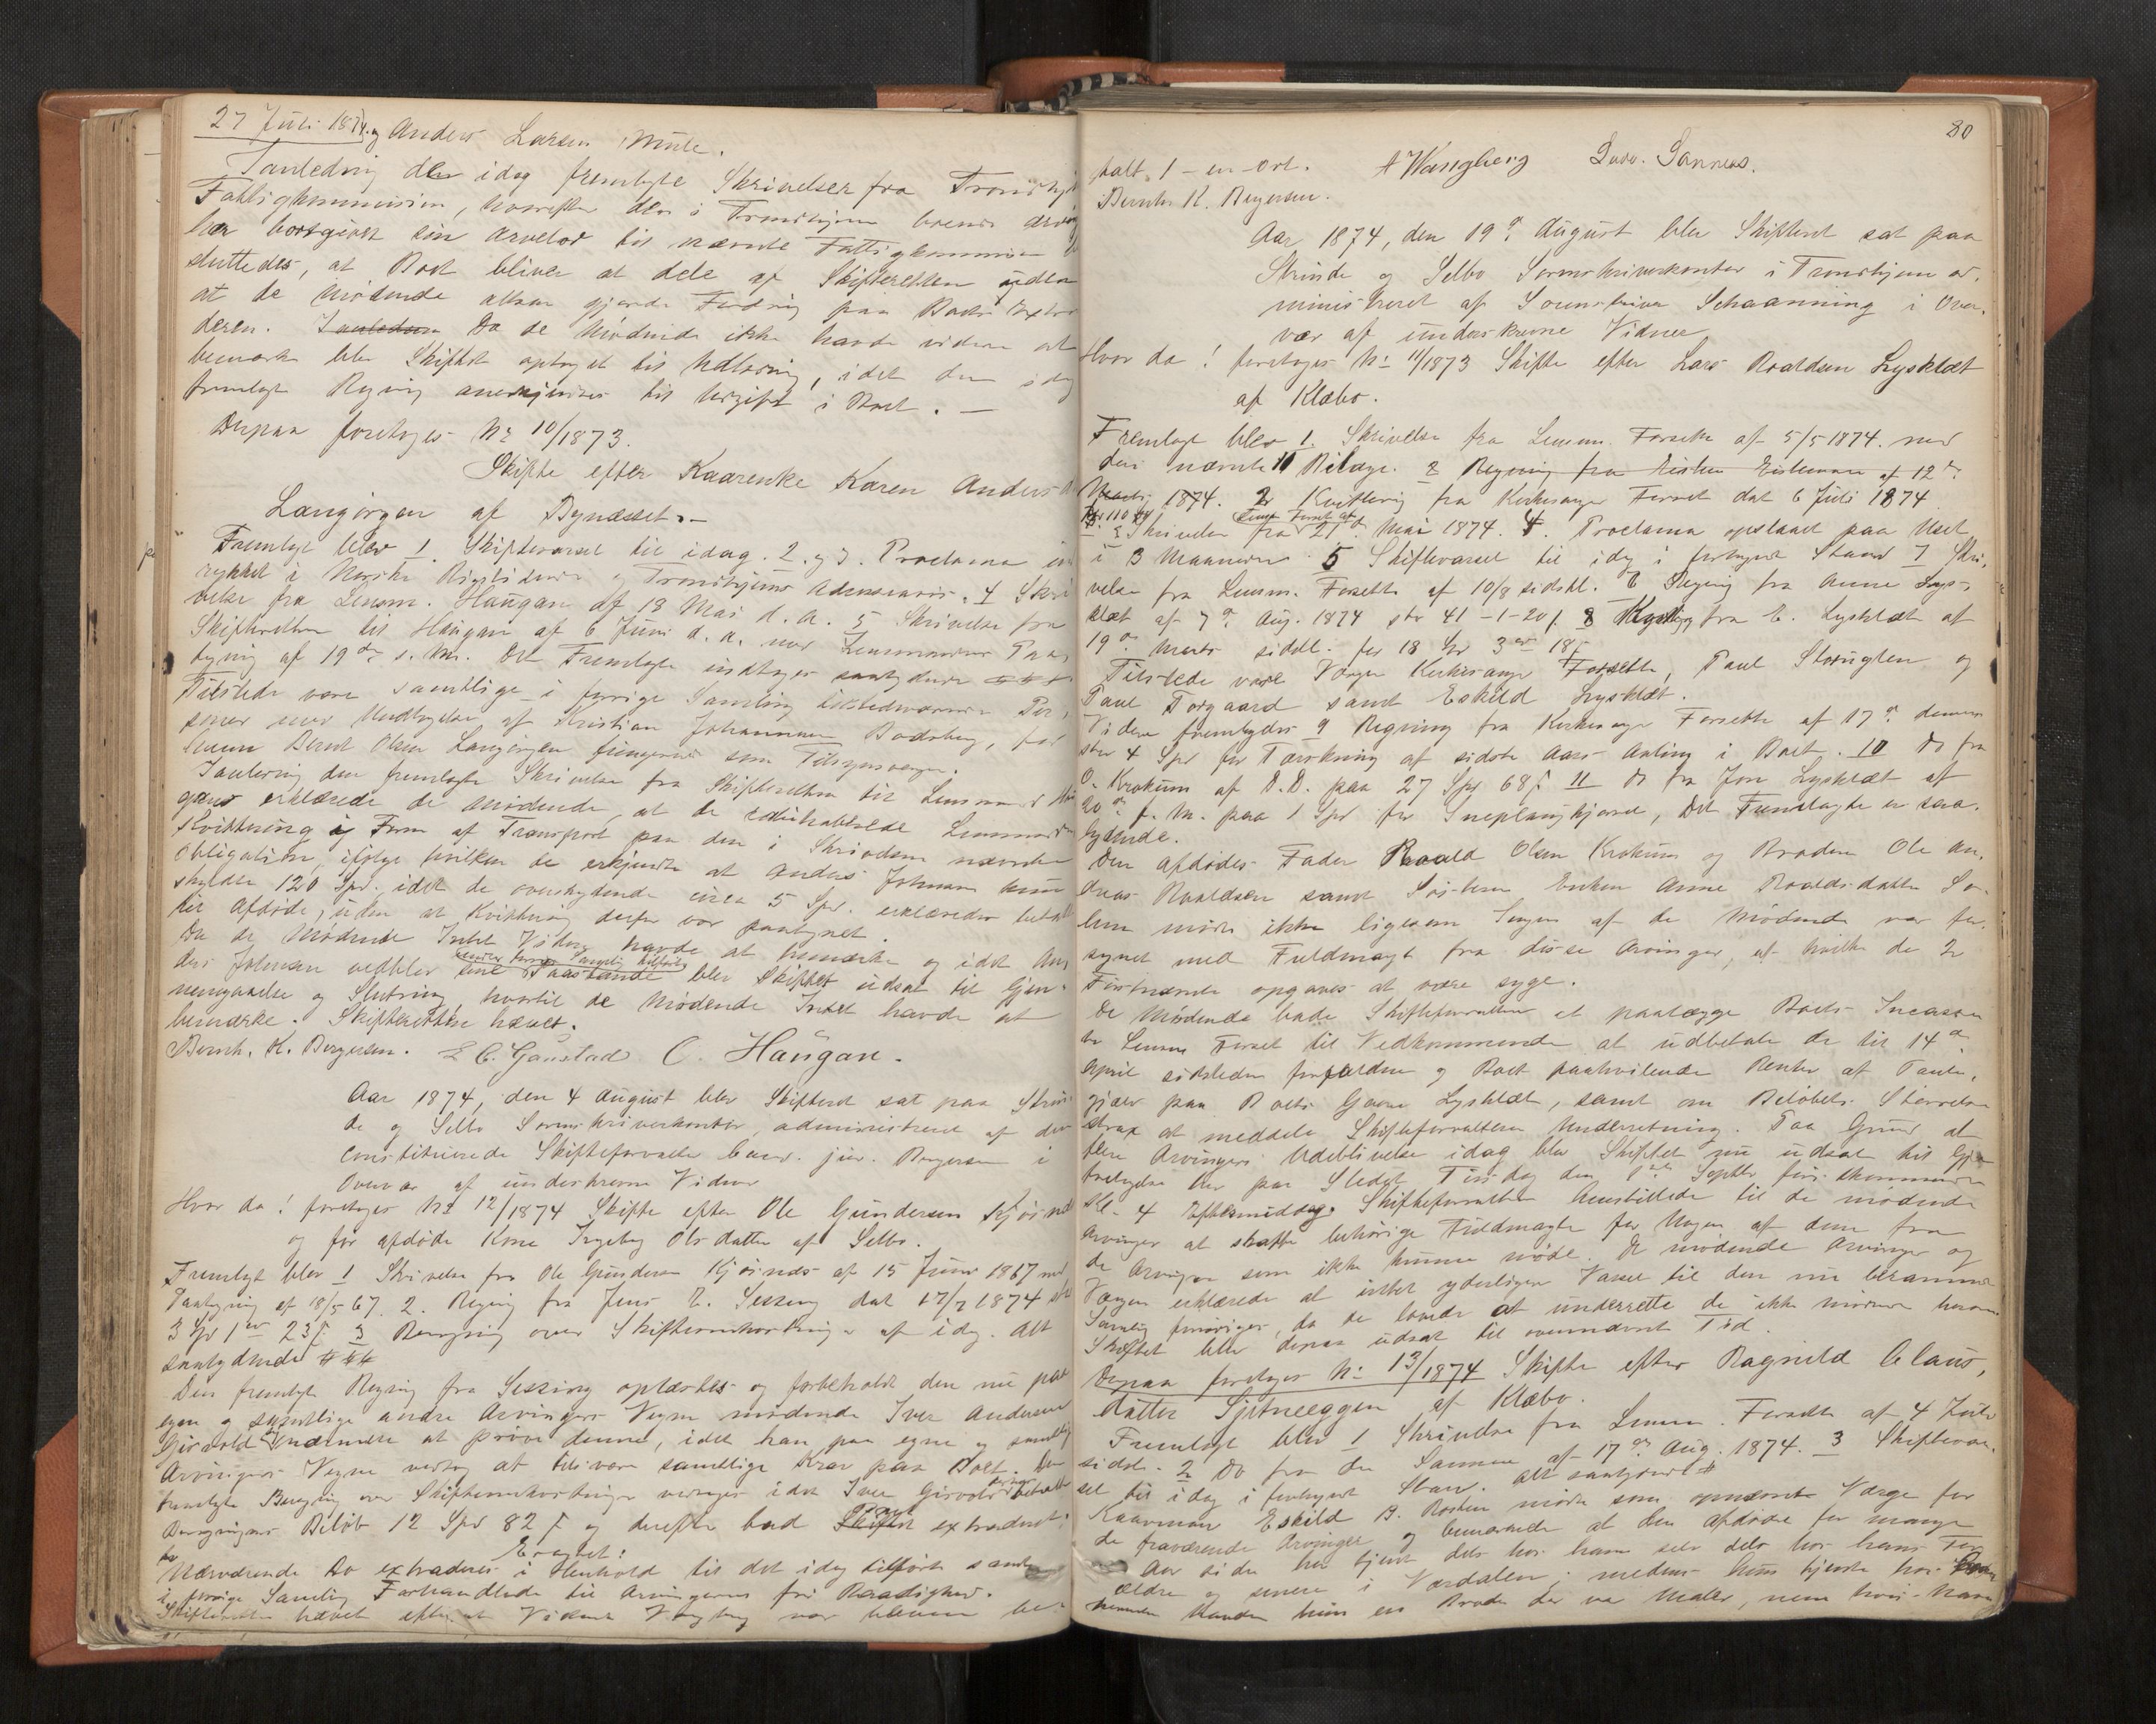 27 Juli 1874. og Anders Larsen Mule.
I anledning den idag fremlagte Skrivelser fra Trondhj
Fattigkommission, hvorefter den i Trondhjem boende
har bortgivet sin Arvelod til nævnte Fattigkommission
sluttedes, at Boet bliver at dele af Skifteretten uden
at de Mødende attraar gjorde Fordring paa Boets
deren. Da de Mødende ikke havde videre at
bemærke blev Skiftet optaget til Udlodning, idet den idag
fremlagte Regning anerkjendtes til Udgift i Boet. —
Derpaa foretoges No 10/1873.
Skifte efter Kaarenke Karen Anders
Langørgen af Bynæsset. —
Fremlagt blev 1. Skiftevarsel til idag. 2. og 3. Proclama ind
rykket i Norske Rigstidende og Trondhjems Adresseavis. 4 Skri
velse fra Lensm. Haugan af 18 Mai d. A. 5 Skrivelse fra
Skifteretten til Haugan af 6 Juni d. A. med Lensmandens Paa
tegning af 19de s. M. Det Fremlagte indtages saalydende
Tilstede vare samtlige i forrige Samling tilstedeværende Per
soner med Undtagelse af Kristian Johannesen Bodsberg, for
hvem Bernt Olsen Langørgen fungerede som Tilsynsværge.
I Anledning den fremlagte Skrivelse fra Skifteretten til Lensmand Hau
gans erklærede de Mødende, at de Lensmanden
Kvittering i Form af Transport paa den i Skrivelsen nævnte
Obligation, ifølge hvilken de erkjendte at Anders Johnsen kun
skyldte 120 Spd. idet de overskydende circa 5 Spd. erklæredes betalt
til Afdøde, uden at Kvittering derfor var paategnet.
Da de Mødende Intet Videre havde at bemærke og idet An
ders Johnsen vedblev sine Paastande blev Skiftet udsat til Gjen-
nemgaaelse og Slutning, hvortil de Mødende Intet havde at
bemærke. Skifteretten hævet.
Bernh. K. Bergersen. E C. Gaustad O. Haugan.
Aar 1874, den 4 August blev Skifteret sat paa Strin-
de og Selbo Sorenskriverkontor, administreret af den
constituerede Skifteforvalter Cand. jur. Bergersen i
Overvær af underskrevne Vidner
Hvor da! foretoges No 12/1874 Skifte efter Ole Gundersen Kjøsnæs
og før afdøde Kone Ingeborg Olsdatter af Selbo.
Fremlagt blev 1 Skrivelse fra Ole Gundersen Kjøsnæs af 15 Juni 1867 med
Paategning af 18/5 67. 2. Regning fra Jens E. Sessing dat 17/7 1874 stor
3 Spd 1 ort 23 s. 3 Beregning over Skifteomkostninger af idag. Alt
saalydende
Den fremlagte Regning fra Sessing oplæstes og forbeholdt den nu paa
egne og samtlige andre Arvingers Vegne mødende Iver Andersen
Girvold Medmindre at prøve denne, idet han paa egne og samtlige
Arvingers Vegne vedtog at tilsvare samtlige Krav paa Boet. Den
fremlagte Beregning over Skifteomkostninger vedtoges idet Iver Girvold betalte
Beregningens Beløb 12 Spd 82 s og derefter bad Boet extraderet:
Eragtet:
Nærværende Bo extraderes i Henhold til det idag tilførte samt
i forrige Samling Forhandlede til Arvingernes frie Raadighed.
Skifteretten hævet efterat Vidnet Wangberg var bleven be-
80
talt 1 - en - Ort. A Wangberg Ludv. Sannæs.
Bernh. K. Bergersen.
Aar 1874, den 19de August blev Skifteret sat paa
Strinde og Selbo Sorenskriverkontor i Trondhjem ad-
ministreret af Sorenskriver Schaanning i Over-
vær af underskrevne Vidner
Hvor da! foretoges No 11/1873 Skifte efter Lars Roaldsen Lysklæt
af Klæbo.
Fremlagt blev 1. Skrivelse fra Lensm. Forseth af 5/5 1874. med
deri nævnte 11 Bilage. 2 Regning fra Eistenæs af 12te
Marts 1874. 2 Kvittering fra Kirkesanger Forset dat 6 Juli 1874
3 Skrivelse fra Lensm Forset af 21de Mai 1874. 4. Proclama opslaaet paa Nset
i 3 Maaneder. 5 Skiftevarsel til idag i forkyndt Stand 7 Skri-
velse fra Lensm. Forseth af 10/8 sidstl. 6 Regning fra Anne Lys-
klæt af 7de Aug. 1874 stor 41-1-20 s. 8 fra E. Lysklæt af
19de Marts sidstl. for 18 Spd 3 ort 18 s.
Tilstede vare Værgen Kirkesanger Forseth, Paul Storugten og
Paul Torgaard samt Eskild Lysklæt.
Videre fremlagdes 9 Regning fra Kirkesanger Forseth af 17de dennes
stor 4 Spd for Tærskning af sidste Aars Avling i Boet. 10 Do fra
O. Krokum af D.D. paa 27 Spd 68 s 11 Do fra Jon Lysklæt af
20de f. M. paa 1 Spd for Sneplougkjørsel, Det Fremlagte er saa-
lydende.
Den afdødes Fader Roald Olsen Krokum og Broderen Ole An-
dreas Roaldsen samt Søsteren Enken Anne Roaldsdatter So-
lem mødte ikke ligesom Ingen af de Mødende var for-
synet med Fuldmagt fra disse Arvinger, af hvilke de 2
Førstnævnte opgaves at være syge.
De Mødende bade Skifteforvalteren at paalægge Boets Incassa-
tor Lensm Forset til Vedkommende at udbetale de til 14de
April sidstleden forfaldne og Boet paahvilende Renter af Pante-
gjæld paa Boets Gaard Lysklæt, samt om Beløbets Størrelse
strax at meddele Skifteforvalteren Underretning. Paa Grund af
flere Arvingers Udeblivelse idag blev Skiftet nu udsat til Gjen-
foretagelse her paa Stedet Tirsdag den 1ste Septbr førstkommende
Kl. 4 Eftermiddag. Skifteforvalteren henstillede til de mødende
Arvinger at skaffe behørige Fuldmagter for Nogen af dem fra
de Arvinger som ikke kunne møde. De mødende Arvinger og
Værgen erklærede at intet yderligere Varsel til den nu berammede
Samling fornødiges, da de lovede at underrette de ikke mødende herom.
Skiftet blev derpaa udsat til ovennævnte Tid.
Derpaa foretoges No 13/1874 Skifte efter Ragnild Claus-
datter Sjetneeggen af Klæbo.
Fremlagt blev 1 Skrivelse fra Lensm. Forseth af 4 Juli
sidstl. 2 Do fra den Samme af 17de Aug. 1874. 3 Skiftevar-
sel til idag i forkyndt Stand. Alt saalydende
Kaarmand Eskild B. Rosten mødte som opnævnte Værge for
de fraværende Arvinger og bemærkede at den afdøde for mange
Aar siden har tjent dels hos ham selv dels hos hans For-
ældre og senere i Værdalen; medens hun tjente hos
Manden hun en Broder der var Maler, men hvis Navn